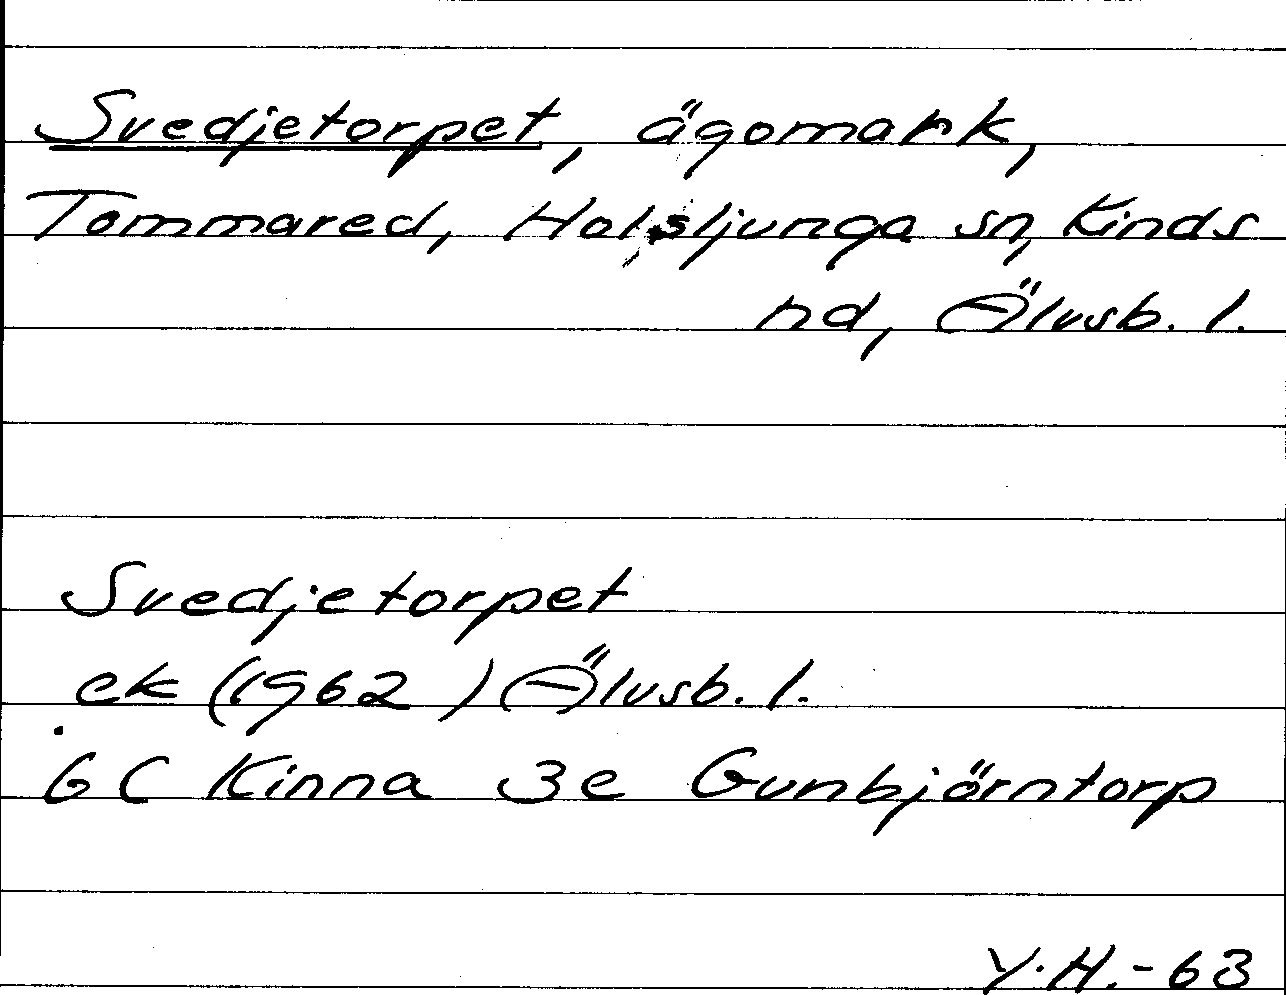 Svedjetorpet, ägomark,
Tommared, Holsljunga sn, Kinds
hd, Älvsb. l.
Svedjetorpet
ek (1962) Älvsb. l.
6 C Kinna 3e Gunbjörntorp
Y.H.-63